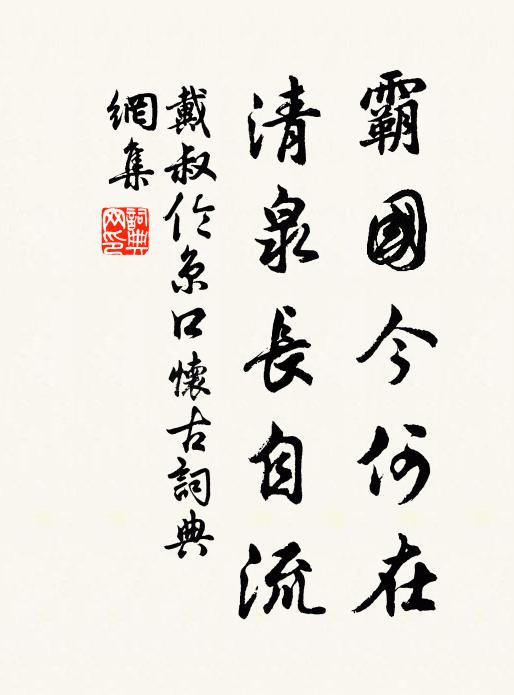 霸國今何在
清泉長自流
戴叔伦京口懷古詞典
網集
詞典
网印